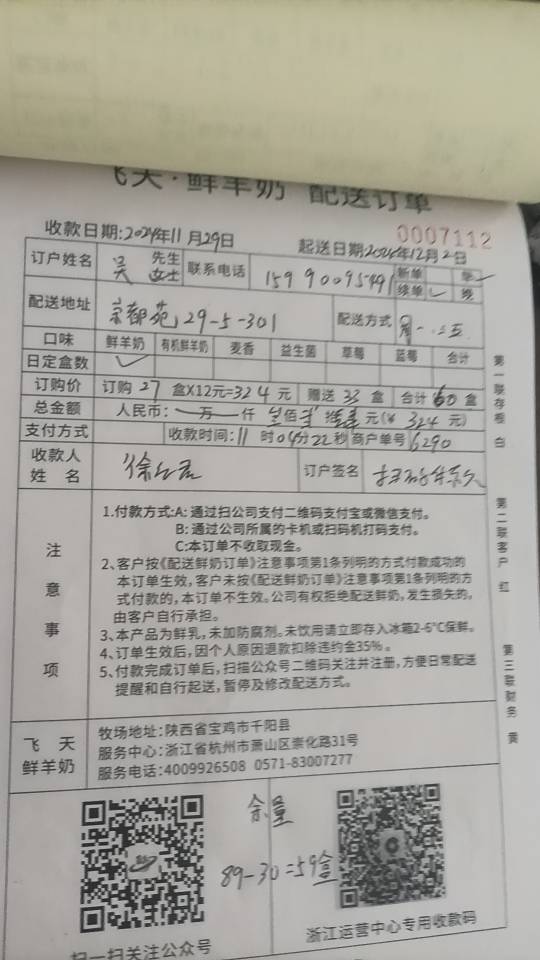 飞天·鲜羊奶 配送订单
收款日期:2024年11月29日 起送日期2024年12月2日
0007112
订户姓名 吴 先生 女士 联系电话 15990095491 新单 续单 早 晚
配送地址 京都苑29-5-301 配送方式 周一.三五
口味 鲜羊奶 有机鲜羊奶 麦香 益生菌 草莓 蓝莓 合计
日定盒数 ✓
订购价 订购 27 盒X12元=324 元 赠送 33 盒 合计 60 盒
总金额 人民币: 万 仟 佰 元(¥ 324 元)
支付方式 收款时间: 11 时 04分 22秒 商户单号 6290
收款人 姓名 订户签名
注意事项
1.付款方式:A: 通过扫公司支付二维码支付宝或微信支付。
B: 通过公司所属的卡机或扫码机打码支付。
C:本订单不收取现金。
2、客户按《配送鲜奶订单》注意事项第1条列明的方式付款成功的
本订单生效,客户未按《配送鲜奶订单》注意事项第1条列明的方
式付款的,本订单不生效。公司有权拒绝配送鲜奶,发生损失的,
由客户自行承担。
3、本产品为鲜乳,未加防腐剂。未饮用请立即存入冰箱2-6°C保鲜。
4、订单生效后,因个人原因退款扣除违约金35%。
5、付款完成订单后,扫描公众号二维码关注并注册,方便日常配送
提醒和自行起送,暂停及修改配送方式。
飞天 鲜羊奶
牧场地址:陕西省宝鸡市千阳县
服务中心:浙江省杭州市萧山区崇化路31号
服务电话:4009926508 0571-83007277
第一联存根 白
第二联客户 红
第三联财务 黄
余量
89-30=59盒
扫一扫关注公众号
浙江运营中心专用收款码